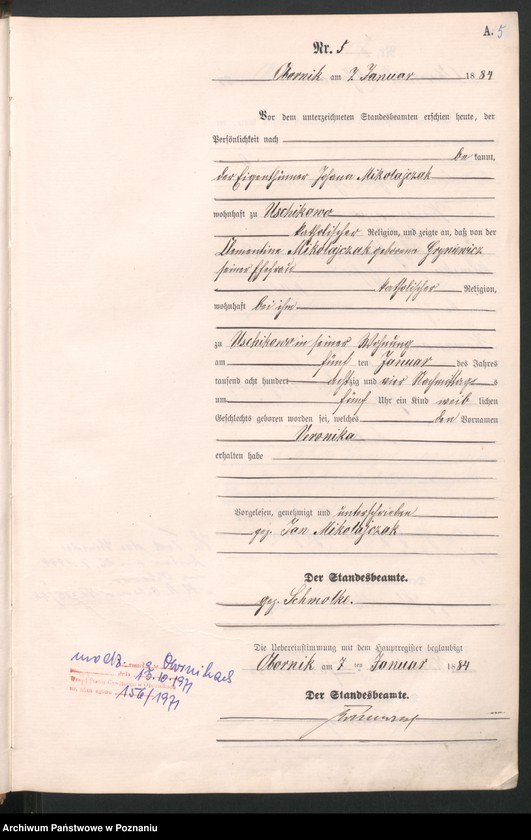 A. 5
Nr. 5
Obornik am 7 Januar 1884
Vor dem unterzeichneten Standesbeamten erschien heute, der
Persönlichkeit nach
be kannt,
der Eigenthümer Johann Mikolajczak
wohnhaft zu Uschikowo
katholischer Religion, und zeigte an, daß von der
Clementine Mikolajczak geborene
seiner Ehefrau
katholischer Religion,
wohnhaft bei ihm
zu Uschikowo in seiner Wohnung
am fünf ten Januar des Jahres
tausend acht hundert achtzig und vier Nachmittags
um fünf Uhr ein Kind weib lichen
Geschlechts geboren worden sei, welches den Vornamen
Veronika
erhalten habe
Vorgelesen, genehmigt und unterschrieben
gez. Jan Mikołajczak
Der Standesbeamte.
gez. Schmolke.
Die Uebereinstimmung mit dem Hauptregister beglaubigt
Obornik am 7 ten Januar 1884
Der Standesbeamte.
13.10.1971
156/1971
Archiwum Państwowe w Poznaniu